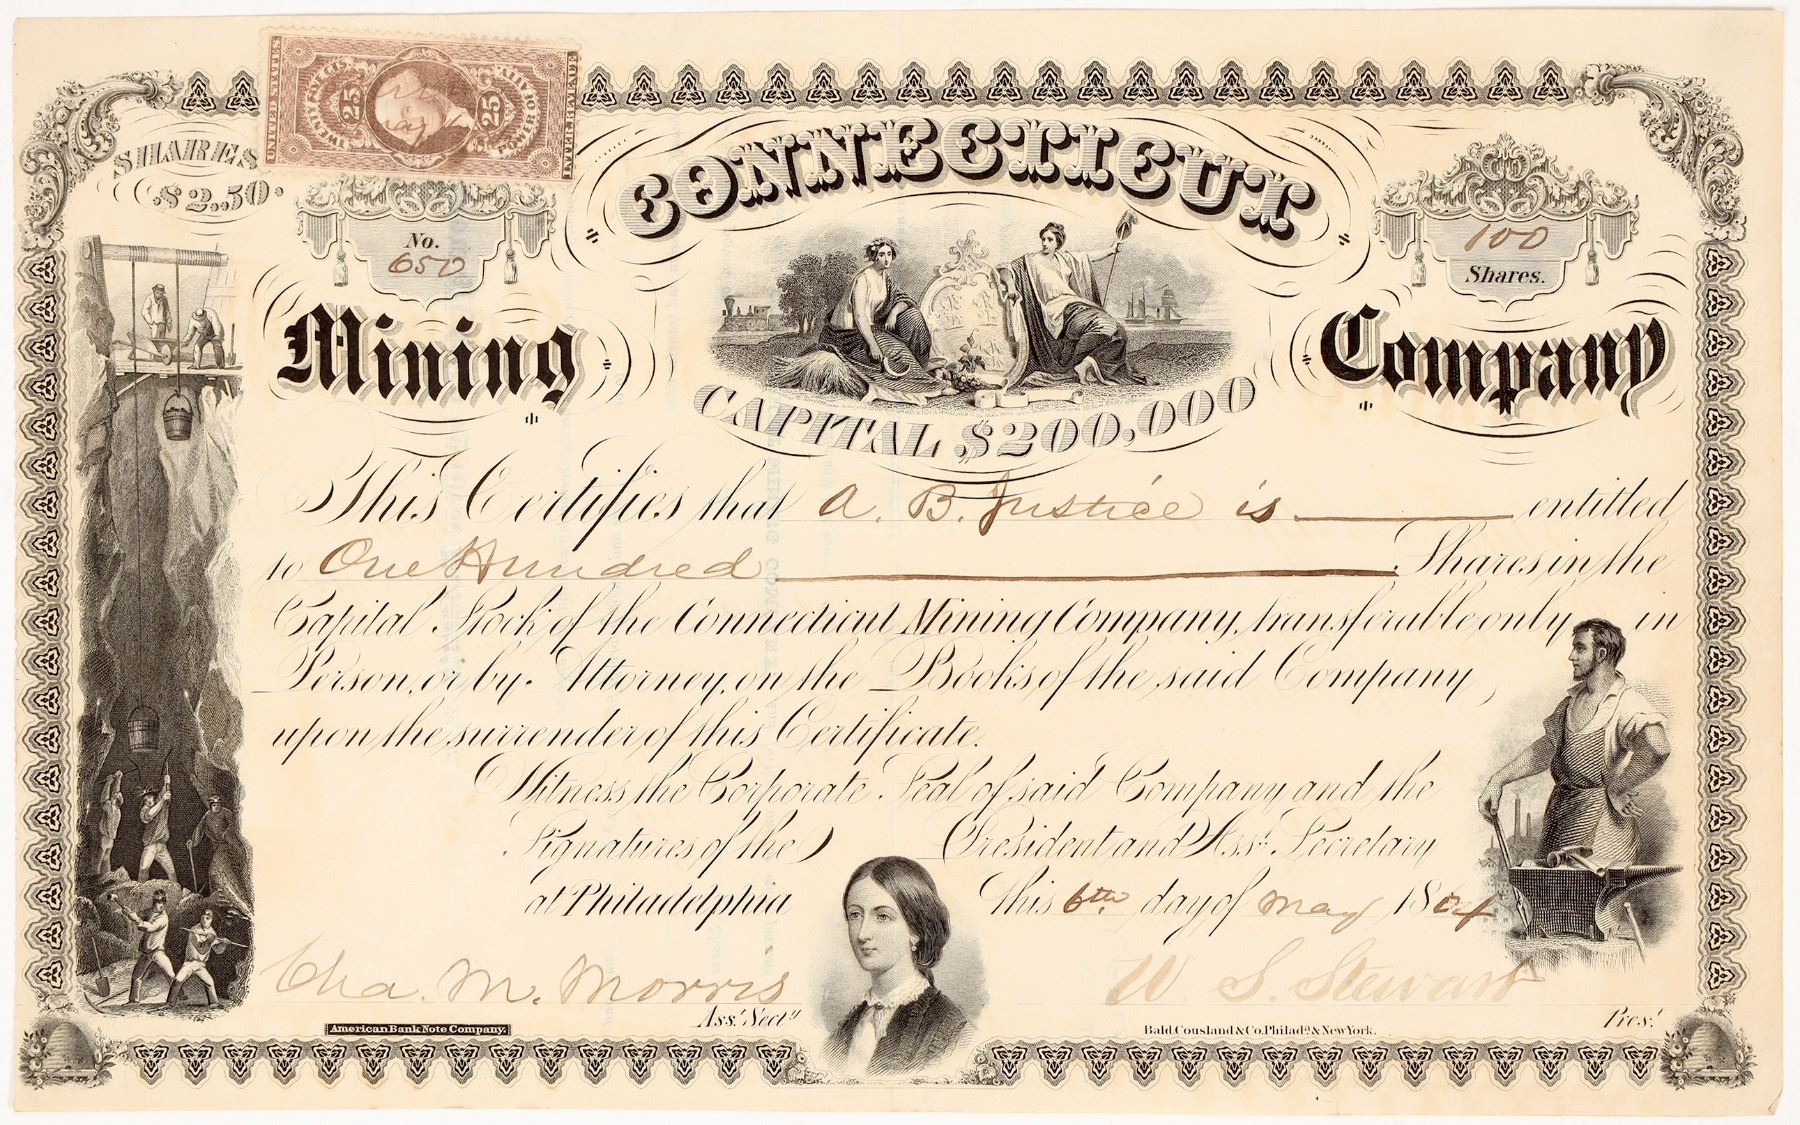 UNITED STATES
TWENTY FIVE CTS.
25
25
POWER OF ATT'Y.
INTER. REVENUE
SHARES
$2.50.
No.
650
CONNECTICUT
100
Shares.
Mining
Company
CAPITAL $200,000
This Certifies that A. B. Justice is entitled
to One Hundred Shares in the
Capital Stock of the Connecticut Mining Company, transferable only in
Person, or by Attorney, on the Books of the said Company
upon the surrender of this Certificate.
Witness the Corporate Seal of said Company and the
Signatures of the President and Asst. Secretary
at Philadelphia this 6th day of May 1864
Cha. M. Morris W. S. Stewart
Asst. Secty. Prest.
American Bank Note Company. Bald, Cousland & Co. Philada. & New York.